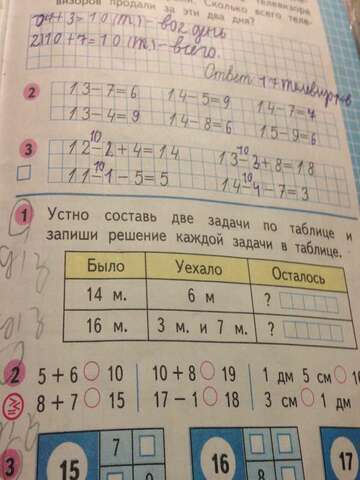 визоров продали за эти два дня?
2)10+7=10(т)-всего.
Ответ 17 телевизоров
2 13-7=6 14-5=9 14-7=7
13-4=9 14-8=6 15-9=6
10 10
3 12-2+4=14 13-3+8=18
10 10
11-1-5=5 14-4-7=3
1 Устно составь две задачи по таблице и
запиши решение каждой задачи в таблице.
Было Уехало Осталось
14 м. 6 м ?
16 м. 3 м. и 7 м. ?
2 5+6 10 10+8 19 1 дм 5 см 1
8+7 15 17-1 18 3 см 1 дм
3 15 7 16 8 17